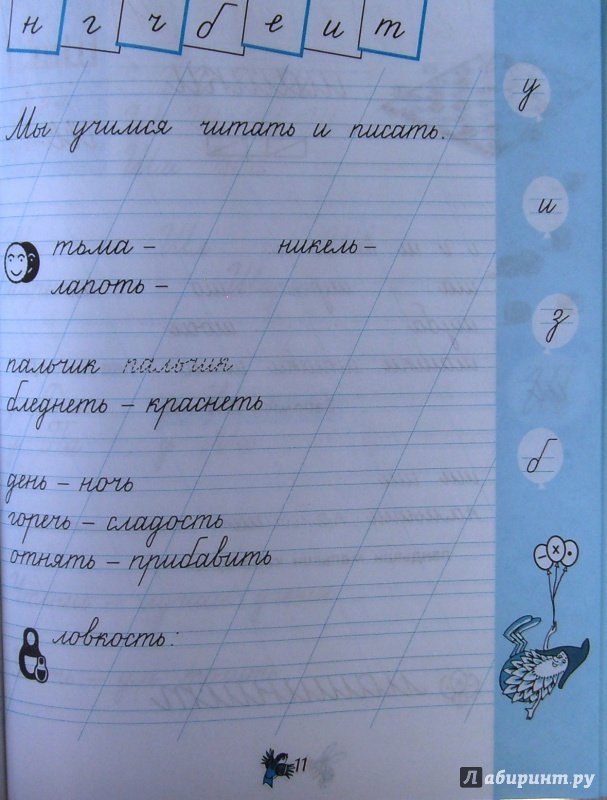 н г ч б е и т
Мы учимся читать и писать.
тьма – никель –
лапоть –
пальчик пальчик
бледнеть – краснеть
день – ночь
горечь – сладость
отнять – прибавить
ловкость:
у
и
з
б
– х •
11
Лабиринт.ру